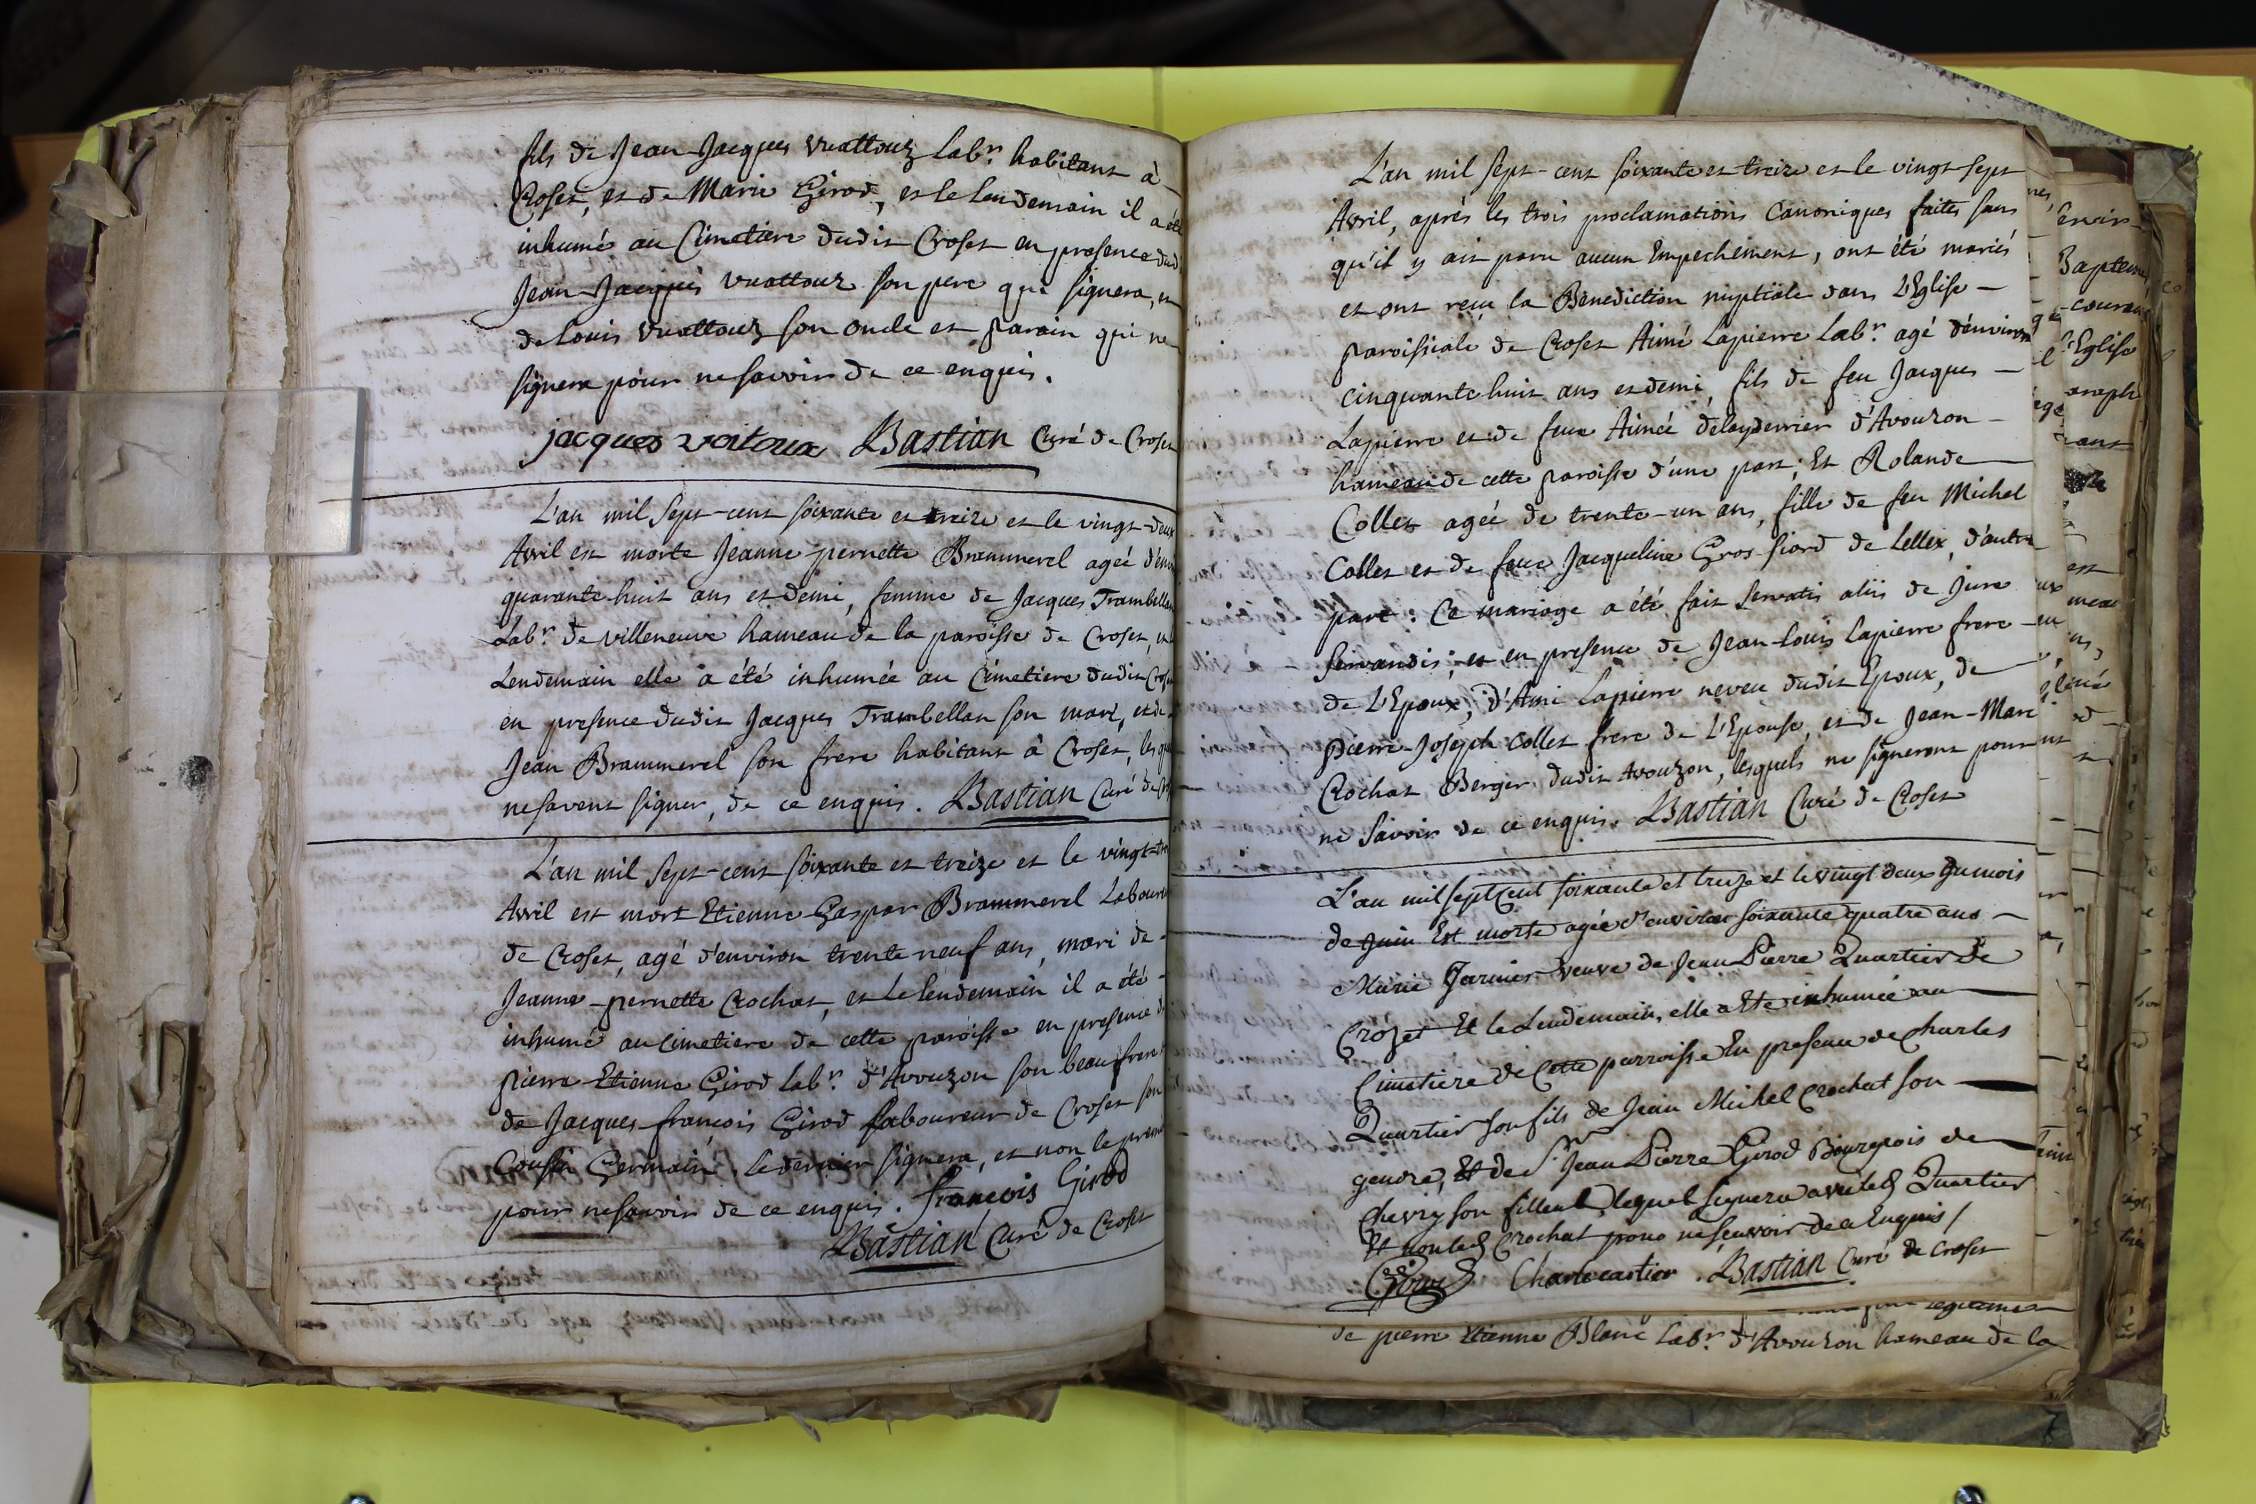 fils de Jean-Jacques Vuattouz Labr. habitant à
Croset, et de Marie Girod, et le lendemain il a été
inhumé au Cimetiere dudit Croset en presence dud
Jean Jacques Vuattouz son pere qui signera, et
de Louis Vuattouz son oncle et parain qui ne
signera pour ne savoir de ce enquis.
jacques voitoux Bastian Curé de Croset
L'an mil sept-cent soixante et treize et le vingt-deux
Avril est morte Jeanne pernette Brammerel ageé d'env
quarante-huit ans et demi, femme de Jacques Trambellan
Labr. de villeneuve hameau de la paroisse de Croset, et le
Lendemain elle a été inhumée au Cimetiere dudit Croset
en presence dudit Jacques Trambellan son mari, et de
Jean Brammerel son frere habitant à Croset, lesqu
ne savent signer, de ce enquis. Bastian Curé de Cro
L'an mil sept-cent soixante et treize et le vingt-tro
Avril est mort Etienne Gaspar Brammerel Laboure
de Croset, agé d'environ trente neuf ans, mari de
Jeanne-pernette Crochat, et Le lendemain il a été
inhumé au Cimetiere de cette paroisse en presence de
pierre-Etienne Girod Labr. d'Avouzon son beau frere
de Jacques-françois Girod Laboureur de Croset son
Cousin Germain. Le dernier signera, et non le premi
pour ne savoir de ce enquis. francois Girod
Bastian Curé de Croset
L'an mil sept-cent soixante et treize et le vingt-sept
Avril, aprés les trois proclamations Canoniques faites sans
qu'il y ait paru aucun Empechement, ont été mariés
et ont reçu la Benediction nuptiale dans L'Eglise
paroissiale de Croset Aimé Lapierre Labr. agé d'environ
cinquante huit ans et demi, fils de feu Jacques
Lapierre et de feue Aimée delayderrier d'Avouzon
hameau de cette paroisse d'une part; Et Rolande
Collet ageé de trente-un ans, fille de feu Michel
Collet et de feue Jacqueline Gros-fiord de Lellex, d'autre
part: Ce mariage a été fait servatis aliis de jure
servandis; et en presence de Jean-Louis Lapierre frere
de L'Epoux, d'Ami Lapierre neveu dudit Epoux, de
pierre-Joseph Collet frere de L'Epouse, et de Jean-Marc
Crochat Berger dudit Avouzon, lesquels ne signeront pour
ne savoir de ce enquis. Bastian Curé de Croset
L'an mil sept cent soixante et treize et le vingt deux du mois
de juin Est morte agée d'environ soixante quatre ans
Marie Garnier veuve de Jean Pierre Quartier de
Crozet Et le Lendemain, elle a Eté inhumée au
Cimetiere de Cette parroisse En presence de Charles
Quartier son fils de Jean Michel Crochat son
gendre, Et de Sr. Jean Pierre Girod Bourgeois de
Chevry son filleul, lequel signera avec led Quartier
Et non led Crochat pour ne sçavoir de ce Enquis /
Girod Charle cartier. Bastian Curé de Croset
de pierre Etienne Blanc Labr. d'Avouzon hameau de la